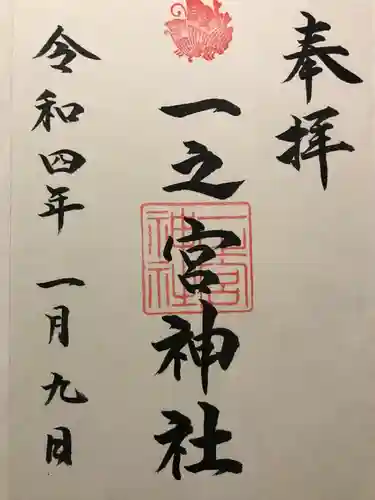 奉拝
一之宮神社
一之宮神社
令和四年一月九日